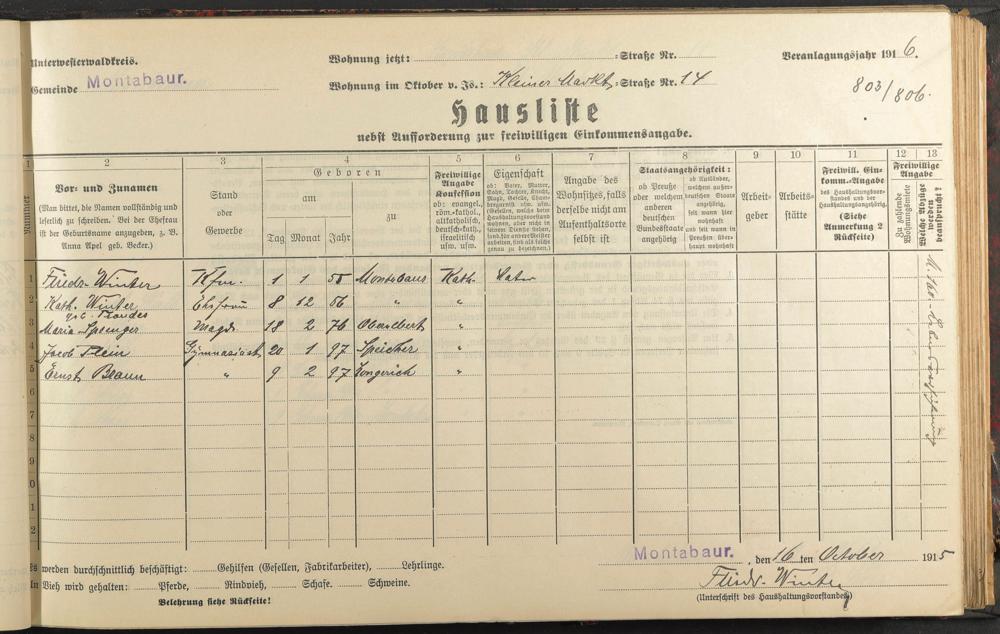 Unterwesterwaldkreis.
Wohnung jetzt: -Straße Nr.
Veranlagungsjahr 1916.
Gemeinde Montabaur.
Wohnung im Oktober v. Js.: Kleiner Markt -Straße Nr. 14
803/806.
Hausliste
nebst Aufforderung zur freiwilligen Einkommensangabe.
1 2 3 4 5 6 7 8 9 10 11 12 13
Nummer
Vor- und Zunamen
(Man bittet, die Namen vollständig und
leserlich zu schreiben. Bei der Ehefrau
ist der Geburtsname anzugeben, z. B.
Anna Apel geb. Becker.)
Stand
oder
Gewerbe
Geboren
am
Tag Monat Jahr
zu
Freiwillige
Angabe
Konfession
ob: evangel.,
röm.-kathol.,
altkatholisch,
deutsch-kath.,
israelitisch
usw. usw.
Eigenschaft
ob: Vater, Mutter,
Sohn, Tochter, Knecht,
Magd, Geselle,
Angabe des
Wohnsitzes, falls
derselbe nicht am
Aufenthaltsorte
selbst ist
Staatsangehörigkeit:
ob Preuße
oder welchem
anderen
deutschen
Bundesstaate
angehörig
ob Ausländer,
welchem außer-
deutschen Staate
angehörig,
seit wann hier
wohnhaft
und seit wann in
Preußen über-
haupt wohnhaft
Arbeit-
geber
Arbeits-
stätte
Freiwill. Ein-
komm.-Angabe
des Haushaltungsvor-
standes und der
Haushaltungsangehörig.
(Siehe
Anmerkung 2
Rückseite)
Freiwillige
Angabe
Zu zahlende
Wohnungsmiete
Welche Abzüge
werden
beansprucht?
1 Friedr. Winter Kfm. 1 1 55 Montabaur Kath. Vater
2 Kath. Winter Ehefrau 8 12 56 " "
geb.
3 Maria Spenger Magd 18 2 76 Oberelbert "
4 Jacob Plein Gymnasiast 20 1 97 Speicher "
5 Ernst Braun " 9 2 97 "
6
7
8
9
0
1
2
Es werden durchschnittlich beschäftigt: Gehilfen (Gesellen, Fabrikarbeiter), Lehrlinge.
In Vieh wird gehalten: Pferde, Rindvieh, Schafe. Schweine.
Belehrung siehe Rückseite!
Montabaur., den 16 ten October 1915
Friedr. Winter
(Unterschrift des Haushaltungsvorstandes)